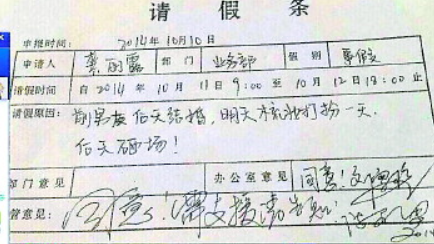 请假条
申报时间： 2014年10月10日
申请人 龚丽露 部门 业务部 假别 事假
请假时间 自2014年10月11日9:00至10月12日18:00止
请假原因： 前男友后天结婚，明天梳妆打扮一天，
后天砸场！
部门意见 办公室意见 同意！
管意见： 同意！需支援请告知！